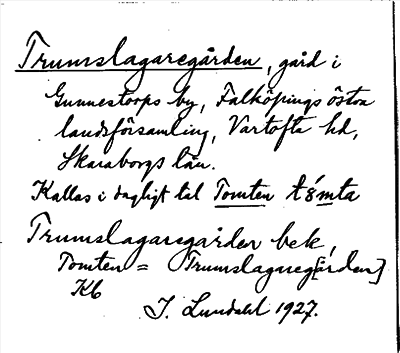 Trumslagaregården, gård i
Gunnestorps by, Falköpings östra
landsförsamling, Vartofta hd,
Skaraborgs län.
Kallas i dagligt tal Tomten
Trumslagaregården bek,
Tomten = Trumslagareg[ården]
Kb
J. Lundahl 1927.